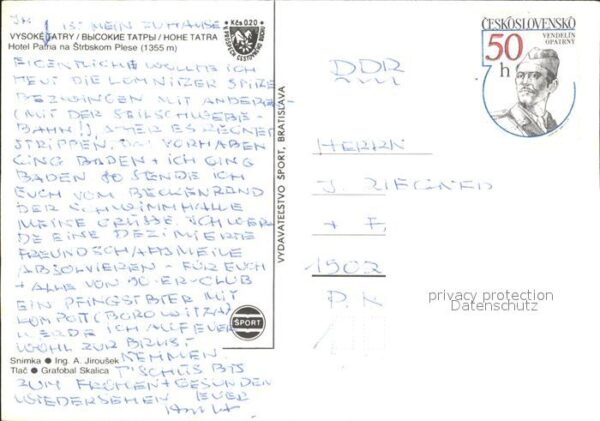 IN
IST MEIN ZUHAUSE
Kčs 0,20
VYSOKÉ TATRY / ВЫСОКИЕ ТАТРЫ / HOHE TATRA
Hotel Patria na Štrbskom Plese (1355 m)
EIGENTLICHE WOLLTE ICH
HEUT DIE LOMNITZER SPITZE
BEZWINGEN MIT ANDEREN
(MIT DER SEILSCHWEBE-
BAHN!), ABER ES REGNET
STRIPPEN. DAS VORHABEN
GING BADEN + ICH GING
BADEN SO SENDE ICH
EUCH VOM BECKENRAND
DER SCHWIMMHALLE
MEINE GRÜSSE. ICH WER-
DE EINE DEZIMIERTE
FREUNDSCHAFTSMEILE
ABSOLVIEREN - FÜR EUCH
+ ALLE VOM ER-CLUB
EIN PFINGSTBIER MIT
KOMPOTT (BOROWITZKA)
WERDE ICH AUF EUER
WOHL ZUR BRUST
NEHMEN.
Snímka ● Ing. A. Jiroušek
Tlač ● Grafobal Skalica
TSCHÜSS BIS
ZUM FROHEN + GESUNDEN
WIEDERSEHEN EUER
VYDAVATEĽSTVO ŠPORT, BRATISLAVA
ŠPORT
ČESKOSLOVENSKO
50
h
VENDELÍN
OPATRNÝ
DDR
HERRN
J.
+ F.
1502
privacy protection
Datenschutz